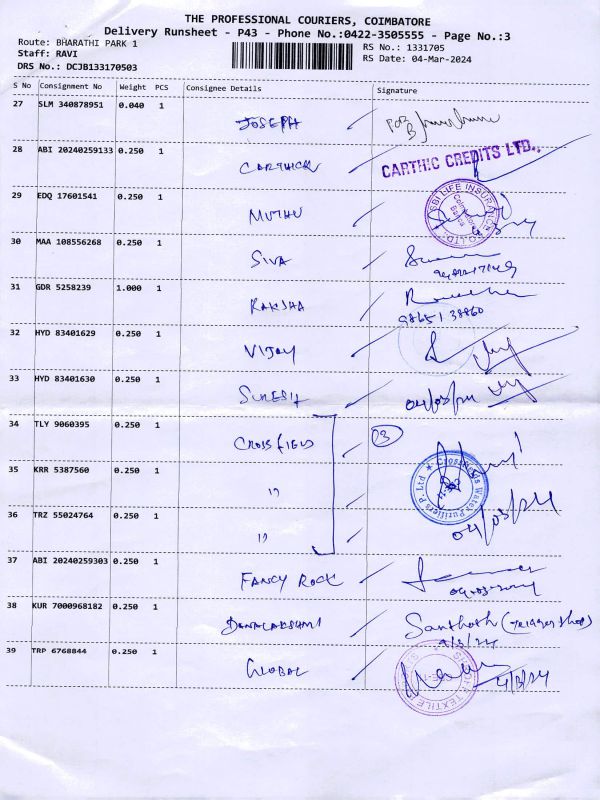 THE PROFESSIONAL COURIERS, COIMBATORE
Delivery Runsheet - P43 - Phone No.:0422-3505555 - Page No.:3
Route: BHARATHI PARK 1
RS No.: 1331705
Staff: RAVI
RS Date: 04-Mar-2024
DRS No.: DCJB133170503
S No Consignment No Weight PCS Consignee Details Signature
27 SLM 340878951 0.040 1 JOSEPH
28 ABI 20240259133 0.250 1 CARTHICK CARTHIC CREDITS LTD.,
29 EDQ 17601541 0.250 1 MUTHU SBI LIFE INSURANCE CO.LTD.
30 MAA 108556268 0.250 1 SIVA
31 GDR 5258239 1.000 1 RAKSHA
98651 38860
32 HYD 83401629 0.250 1 VIJAY
33 HYD 83401630 0.250 1 SURESH 04/03/24
34 TLY 9060395 0.250 1 CROSSFIELD 03
35 KRR 5387560 0.250 1 " Crossfields Water Purifiers P. Ltd
36 TRZ 55024764 0.250 1 " 04/03/24
37 ABI 20240259303 0.250 1 FANCY ROCK
04-03-2024
38 KUR 7000968182 0.250 1 DANALAKSHMI Santhosh (Trigger shop)
4/3/24
39 TRP 6768844 0.250 1 GLOBAL 4/3/24